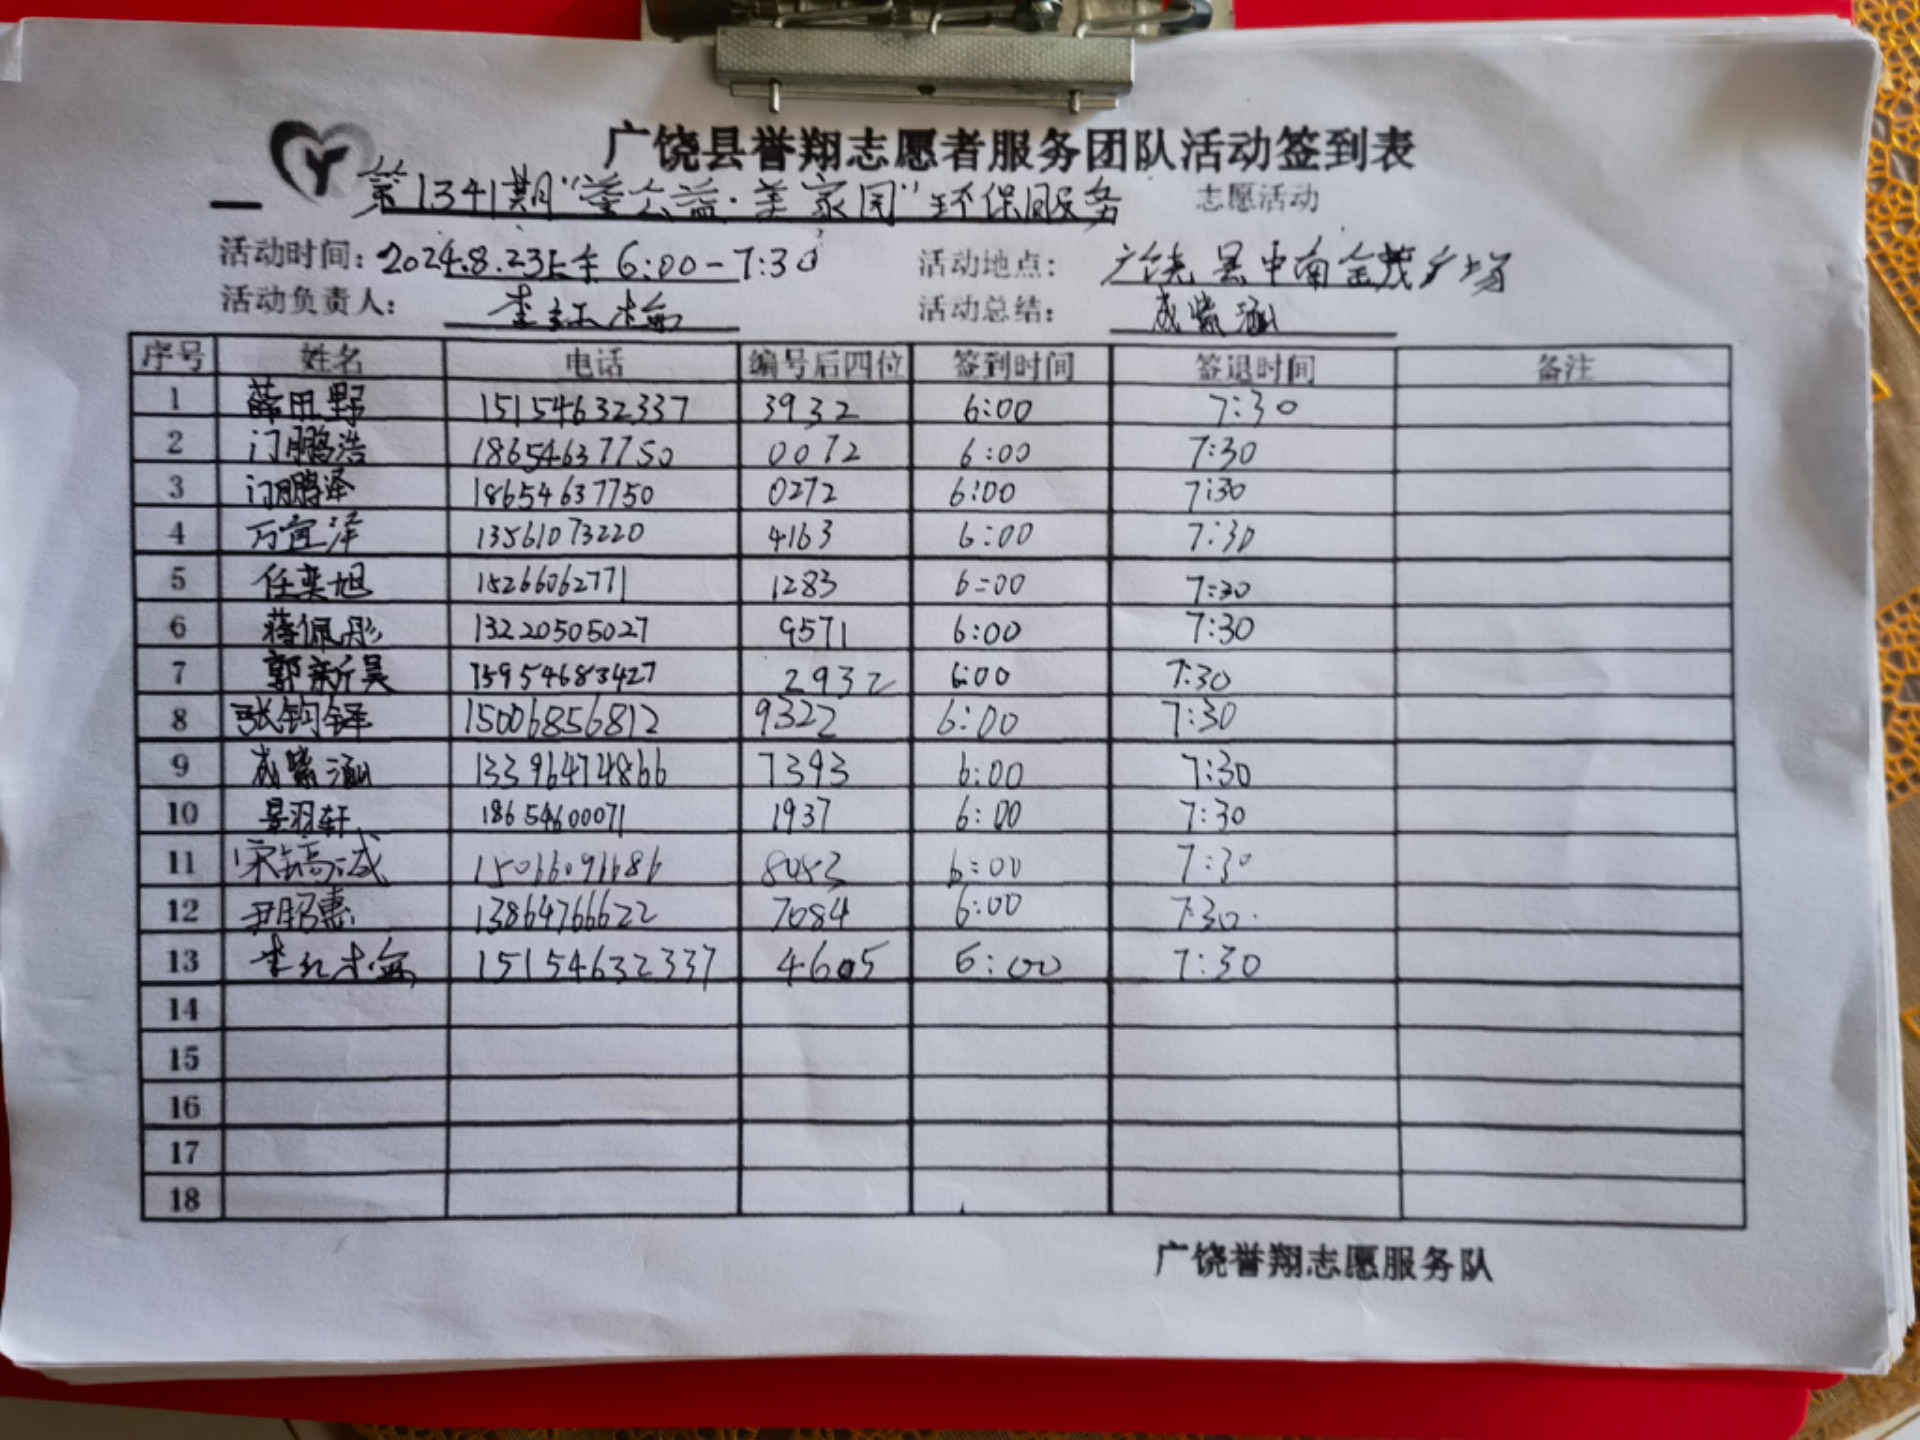 广饶县誉翔志愿者服务团队活动签到表
第1341期“ 公益·美家园”环保服务 志愿活动
活动时间: 2024.8.23上午 6:00-7:30 活动地点: 广饶县中南金茂广场
活动负责人: 李红梅 活动总结: 成紫涵
序号 姓名 电话 编号后四位 签到时间 签退时间 备注
1 薛田野 15154632337 3932 6:00 7:30
2 门鹏浩 18654637750 0072 6:00 7:30
3 门鹏泽 18654637750 0272 6:00 7:30
4 万宜泽 13561073220 4163 6:00 7:30
5 任奕旭 15266062771 1283 6:00 7:30
6 蒋佩彤 13220505027 9571 6:00 7:30
7 郭新昊 15954683427 2932 6:00 7:30
8 张钧铎 15006856812 9322 6:00 7:30
9 成紫涵 13396474866 7393 6:00 7:30
10 羽轩 18654600071 1937 6:00 7:30
11 宋镐诚 15066091686 8083 6:00 7:30
12 尹昭惠 13864766622 7084 6:00 7:30.
13 李红梅 15154632337 4605 6:00 7:30
14
15
16
17
18
广饶誉翔志愿服务队